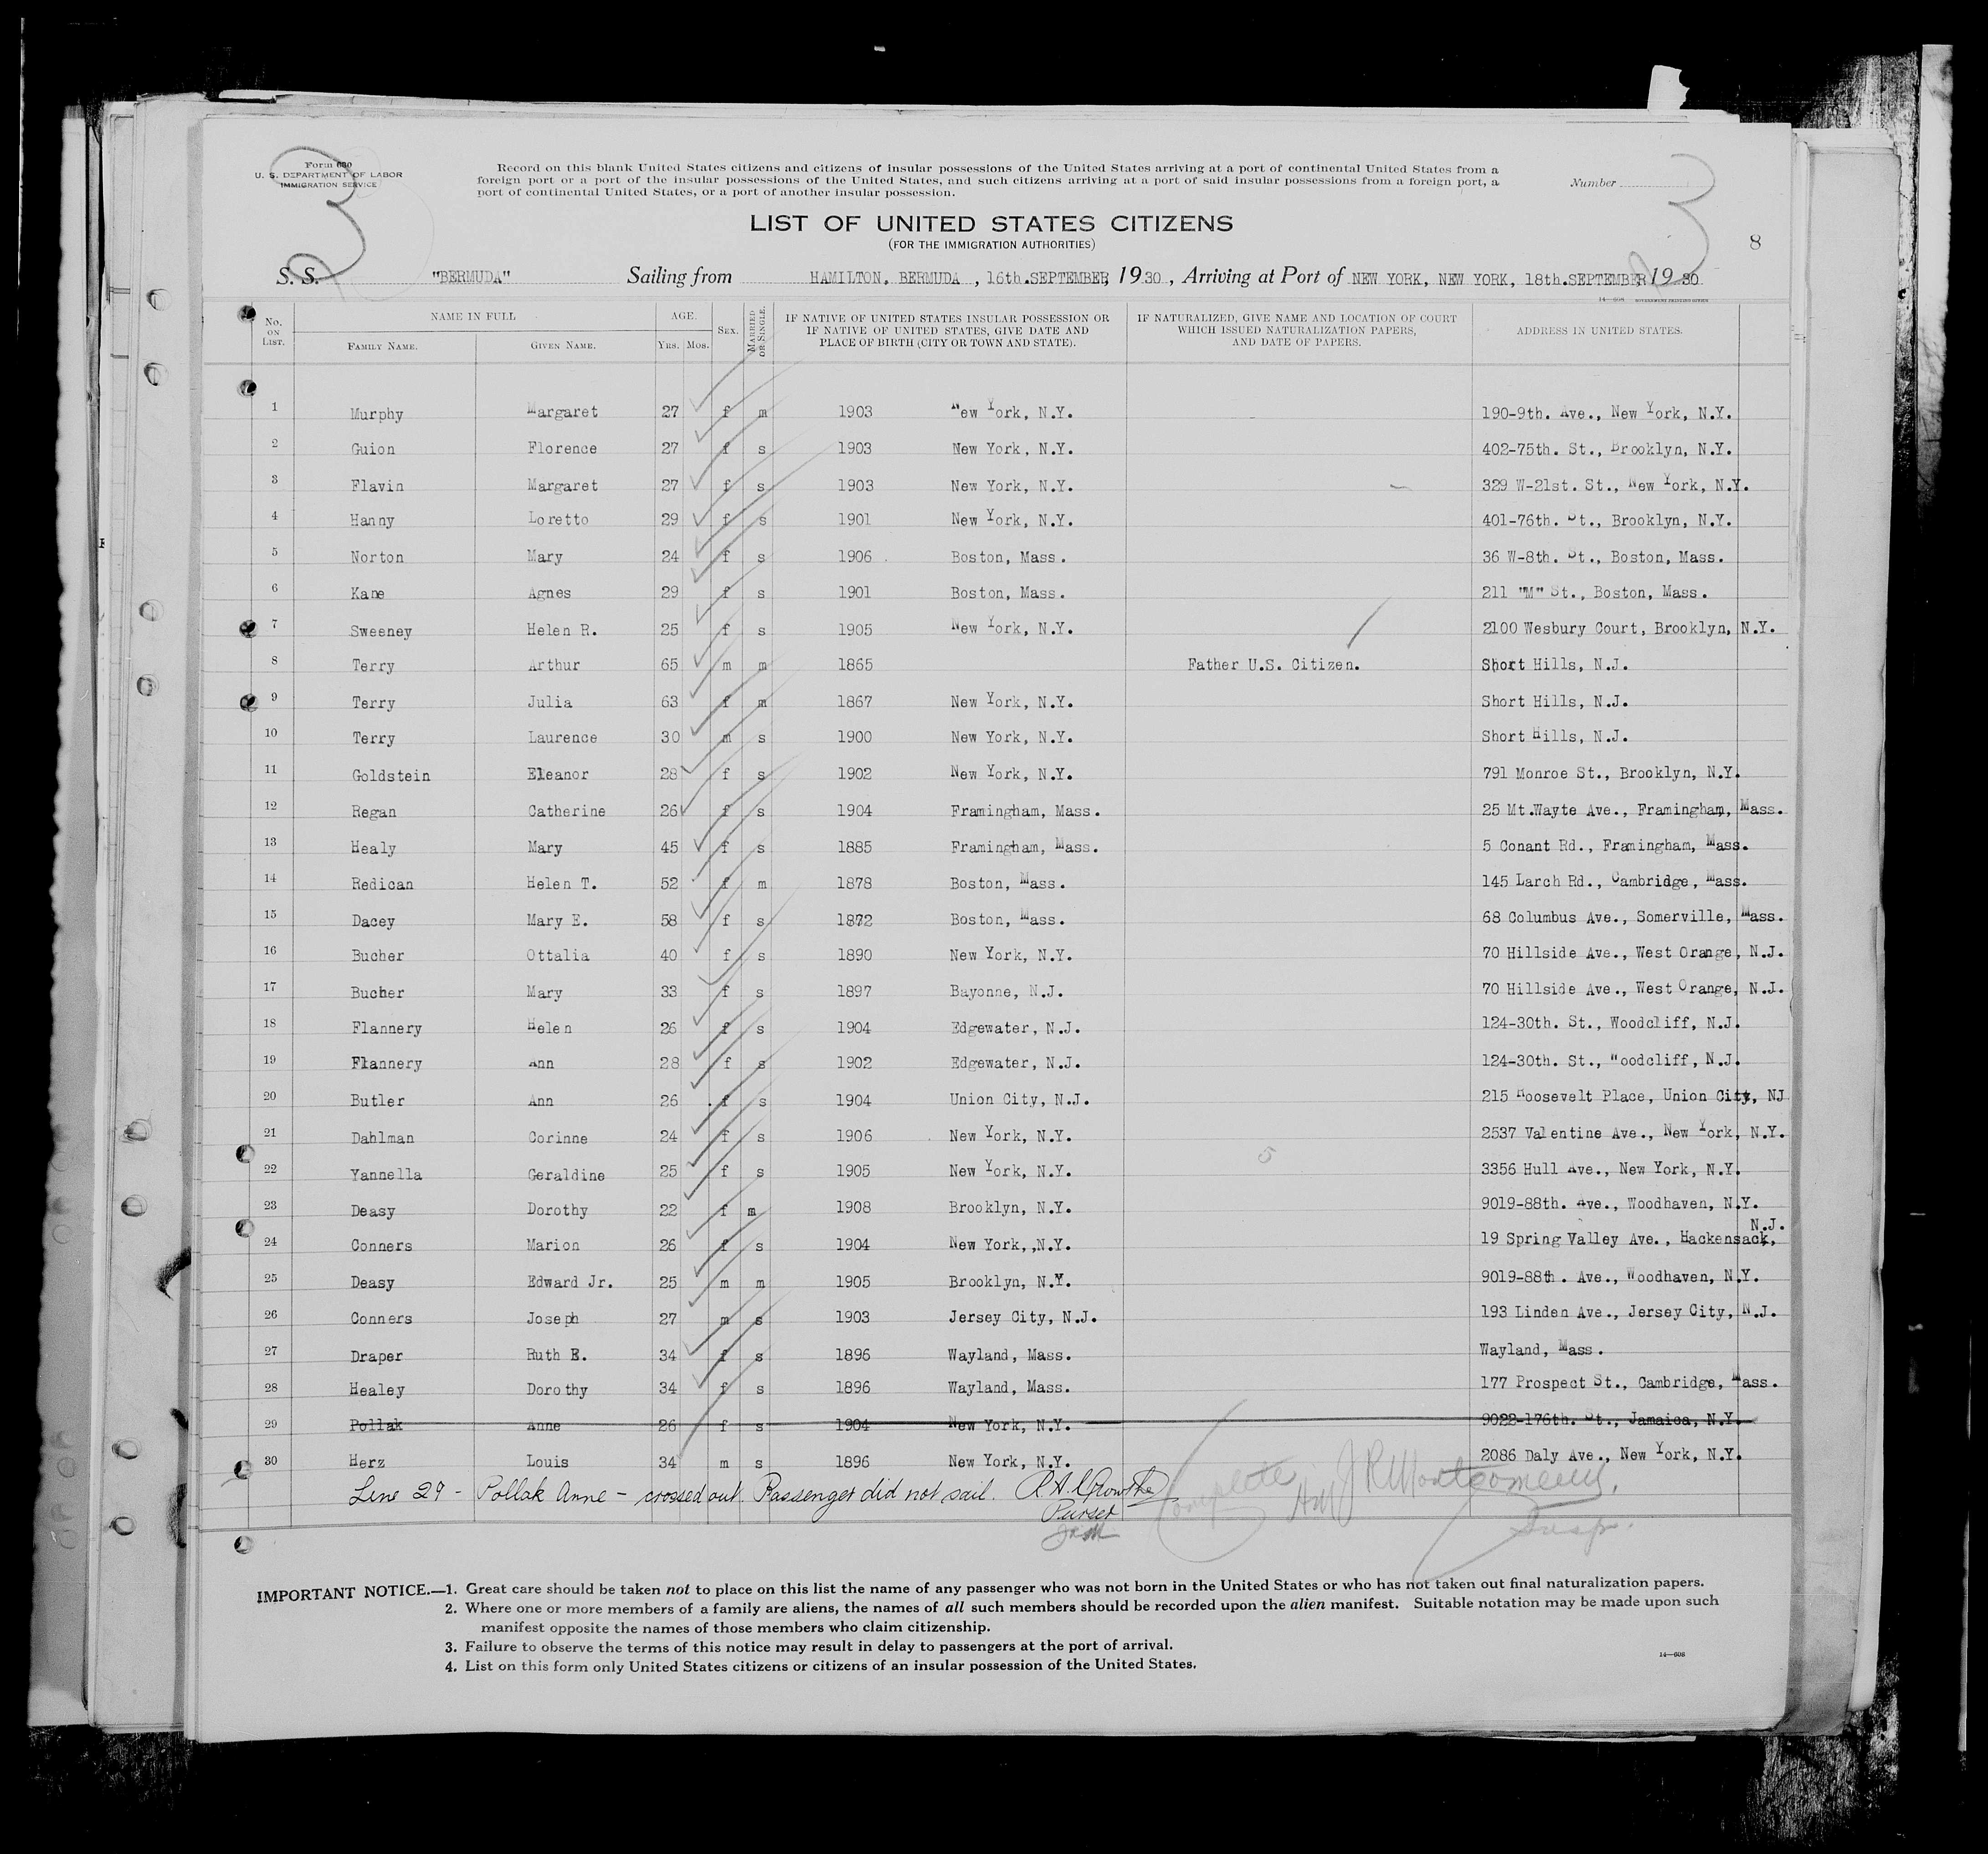 Form 630
U. S. DEPARTMENT OF LABOR
IMMIGRATION SERVICE
3
Record on this blank United States citizens and citizens of insular possessions of the United States arriving at a port of continental United States from a
foreign port or a port of the insular possessions of the United States, and such citizens arriving at a port of said insular possessions from a foreign port, a
port of continental United States, or a port of another insular possession.
Number
3
LIST OF UNITED STATES CITIZENS
(FOR THE IMMIGRATION AUTHORITIES)
8
S. S. "BERMUDA" Sailing from HAMILTON, BERMUDA , 16th.SEPTEMBER, 1930 , Arriving at Port of NEW YORK, NEW YORK, 18th.SEPTEMBER 1930
14—608 GOVERNMENT PRINTING OFFICE
No. ON LIST. NAME IN FULL AGE. SEX. MARRIED OR SINGLE. IF NATIVE OF UNITED STATES INSULAR POSSESSION OR IF NATIVE OF UNITED STATES, GIVE DATE AND PLACE OF BIRTH (CITY OR TOWN AND STATE). IF NATURALIZED, GIVE NAME AND LOCATION OF COURT WHICH ISSUED NATURALIZATION PAPERS, AND DATE OF PAPERS. ADDRESS IN UNITED STATES.
FAMILY NAME. GIVEN NAME. YRS. MOS.
1 Murphy Margaret 27 f m 1903 New York, N.Y. 190-9th. Ave., New York, N.Y.
2 Guion Florence 27 f s 1903 New York, N.Y. 402-75th. St., Brooklyn, N.Y.
3 Flavin Margaret 27 f s 1903 New York, N.Y. 329 W-21st. St., New York, N.Y.
4 Hanny Loretto 29 f s 1901 New York, N.Y. 401-76th. St., Brooklyn, N.Y.
5 Norton Mary 24 f s 1906 Boston, Mass. 36 W-8th. St., Boston, Mass.
6 Kane Agnes 29 f s 1901 Boston, Mass. 211 "M" St., Boston, Mass.
7 Sweeney Helen R. 25 f s 1905 New York, N.Y. 2100 Wesbury Court, Brooklyn, N.Y.
8 Terry Arthur 65 m m 1865 Father U.S. Citizen. Short Hills, N.J.
9 Terry Julia 63 f m 1867 New York, N.Y. Short Hills, N.J.
10 Terry Laurence 30 m s 1900 New York, N.Y. Short Hills, N.J.
11 Goldstein Eleanor 28 f s 1902 New York, N.Y. 791 Monroe St., Brooklyn, N.Y.
12 Regan Catherine 26 f s 1904 Framingham, Mass. 25 Mt.Wayte Ave., Framingham, Mass.
13 Healy Mary 45 f s 1885 Framingham, Mass. 5 Conant Rd., Framingham, Mass.
14 Redican Helen T. 52 f m 1878 Boston, Mass. 145 Larch Rd., Cambridge, Mass.
15 Dacey Mary E. 58 f s 1872 Boston, Mass. 68 Columbus Ave., Somerville, Mass.
16 Bucher Ottalia 40 f s 1890 New York, N.Y. 70 Hillside Ave., West Orange, N.J.
17 Bucher Mary 33 f s 1897 Bayonne, N.J. 70 Hillside Ave., West Orange, N.J.
18 Flannery Helen 26 f s 1904 Edgewater, N.J. 124-30th. St., Woodcliff, N.J.
19 Flannery Ann 28 f s 1902 Edgewater, N.J. 124-30th. St., Woodcliff, N.J.
20 Butler Ann 26 f s 1904 Union City, N.J. 215 Roosevelt Place, Union City, NJ
21 Dahlman Corinne 24 f s 1906 New York, N.Y. 2537 Valentine Ave., New York, N.Y.
22 Yannella Geraldine 25 f s 1905 New York, N.Y. 5 3356 Hull Ave., New York, N.Y.
23 Deasy Dorothy 22 f m 1908 Brooklyn, N.Y. 9019-88th. Ave., Woodhaven, N.Y.
24 Conners Marion 26 f s 1904 New York,,N.Y. 19 Spring Valley Ave., Hackensack, N.J.
25 Deasy Edward Jr. 25 m m 1905 Brooklyn, N.Y. 9019-88th. Ave., Woodhaven, N.Y.
26 Conners Joseph 27 m s 1903 Jersey City, N.J. 193 Linden Ave., Jersey City, N.J.
27 Draper Ruth E. 34 f s 1896 Wayland, Mass. Wayland, Mass.
28 Healey Dorothy 34 f s 1896 Wayland, Mass. 177 Prospect St., Cambridge, Mass.
29 Pollak Anne 26 f s 1904 New York, N.Y. 9022-176th. St., Jamaica, N.Y.
30 Herz Louis 34 m s 1896 New York, N.Y. 2086 Daly Ave., New York, N.Y.
Line 29 - Pollak Anne - crossed out. Passenger did not sail.
Purser
Complete J R Montgomery.
Insp.
IMPORTANT NOTICE.—1. Great care should be taken not to place on this list the name of any passenger who was not born in the United States or who has not taken out final naturalization papers.
2. Where one or more members of a family are aliens, the names of all such members should be recorded upon the alien manifest. Suitable notation may be made upon such
manifest opposite the names of those members who claim citizenship.
3. Failure to observe the terms of this notice may result in delay to passengers at the port of arrival.
4. List on this form only United States citizens or citizens of an insular possession of the United States.
14—608